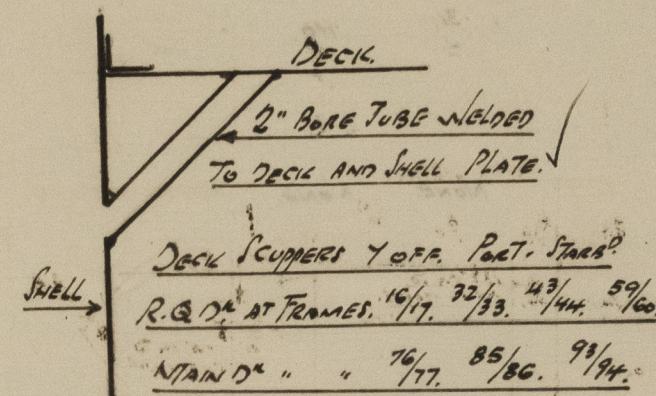 DECK.
2" BORE TUBE WELDED
TO DECK AND SHELL PLATE.
DECK SCUPPERS 7 OFF. PORT. STARBD.
SHELL
R.Q DK AT FRAMES. 16/17. 32/33. 43/44. 59/60
MAIN DK " " 76/77. 85/86. 93/94.